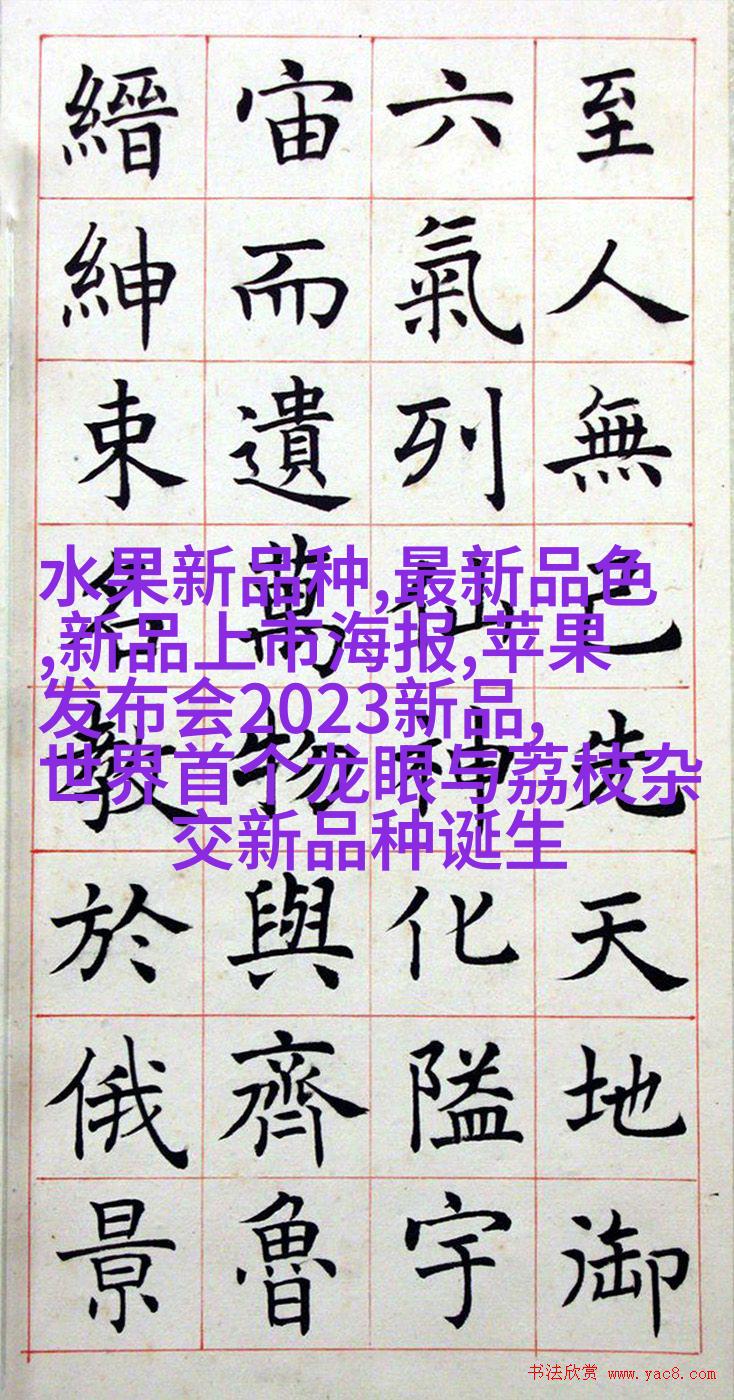 至人無己先天地御
六氣列仙神化隘宇
宙而遺萬物與齊魯
縉紳束名教於俄景
水果新品种,最新品色
,新品上市海报,苹果
发布会2023新品,
世界首个龙眼与荔枝杂
交新品种诞生
书法欣赏 www.yac8.com